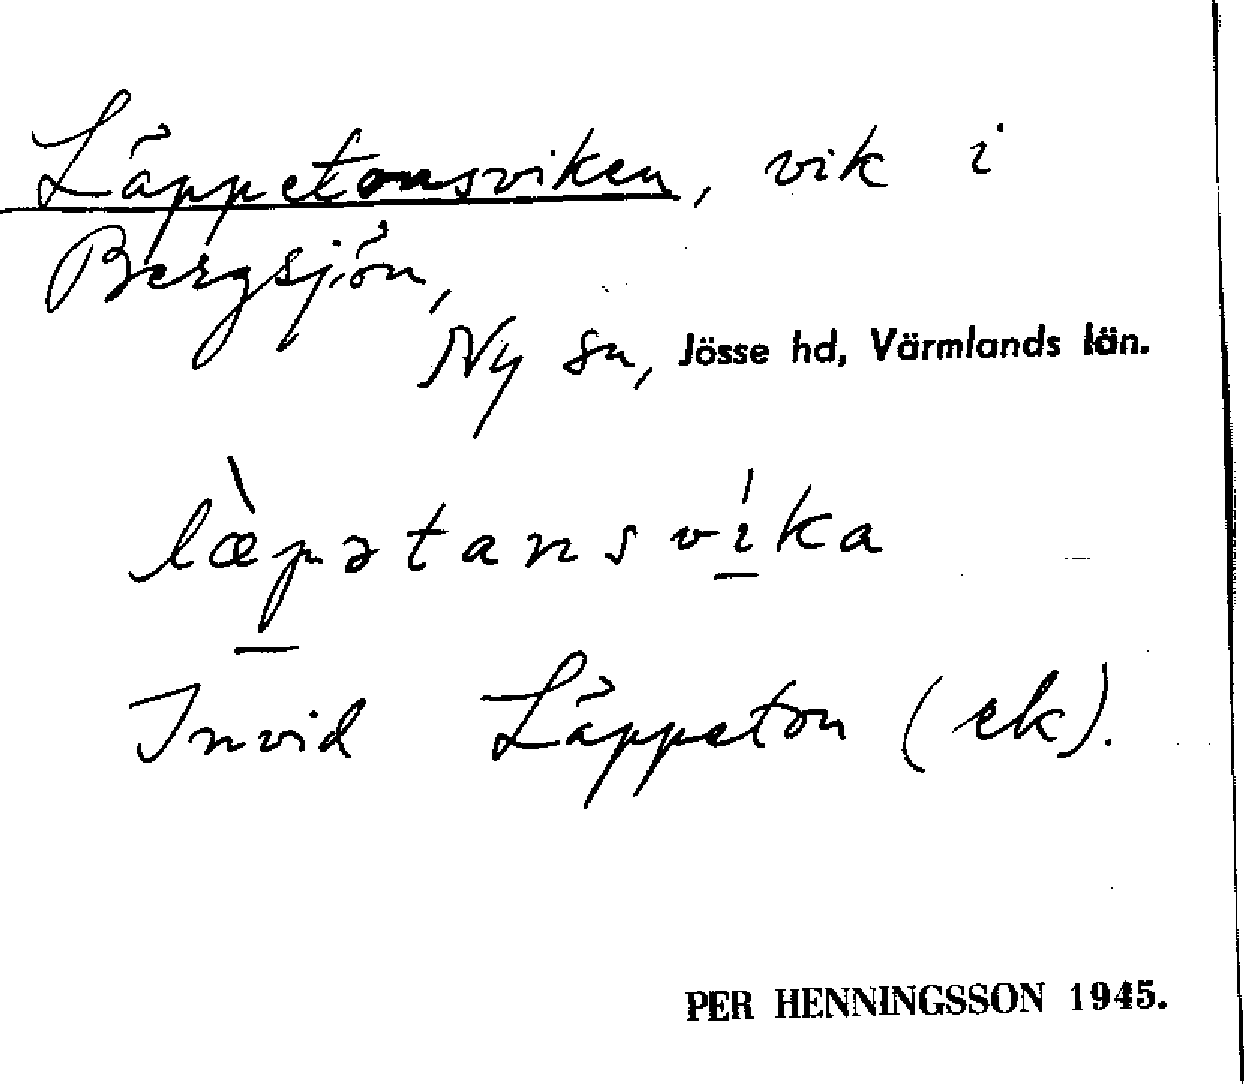 Läppetonsviken, vik i
Bergsjön,
Ny sn, Jösse hd, Värmlands län.
læ̀pətansvíka
Invid Läppeton (ek).
PER HENNINGSSON 1945.